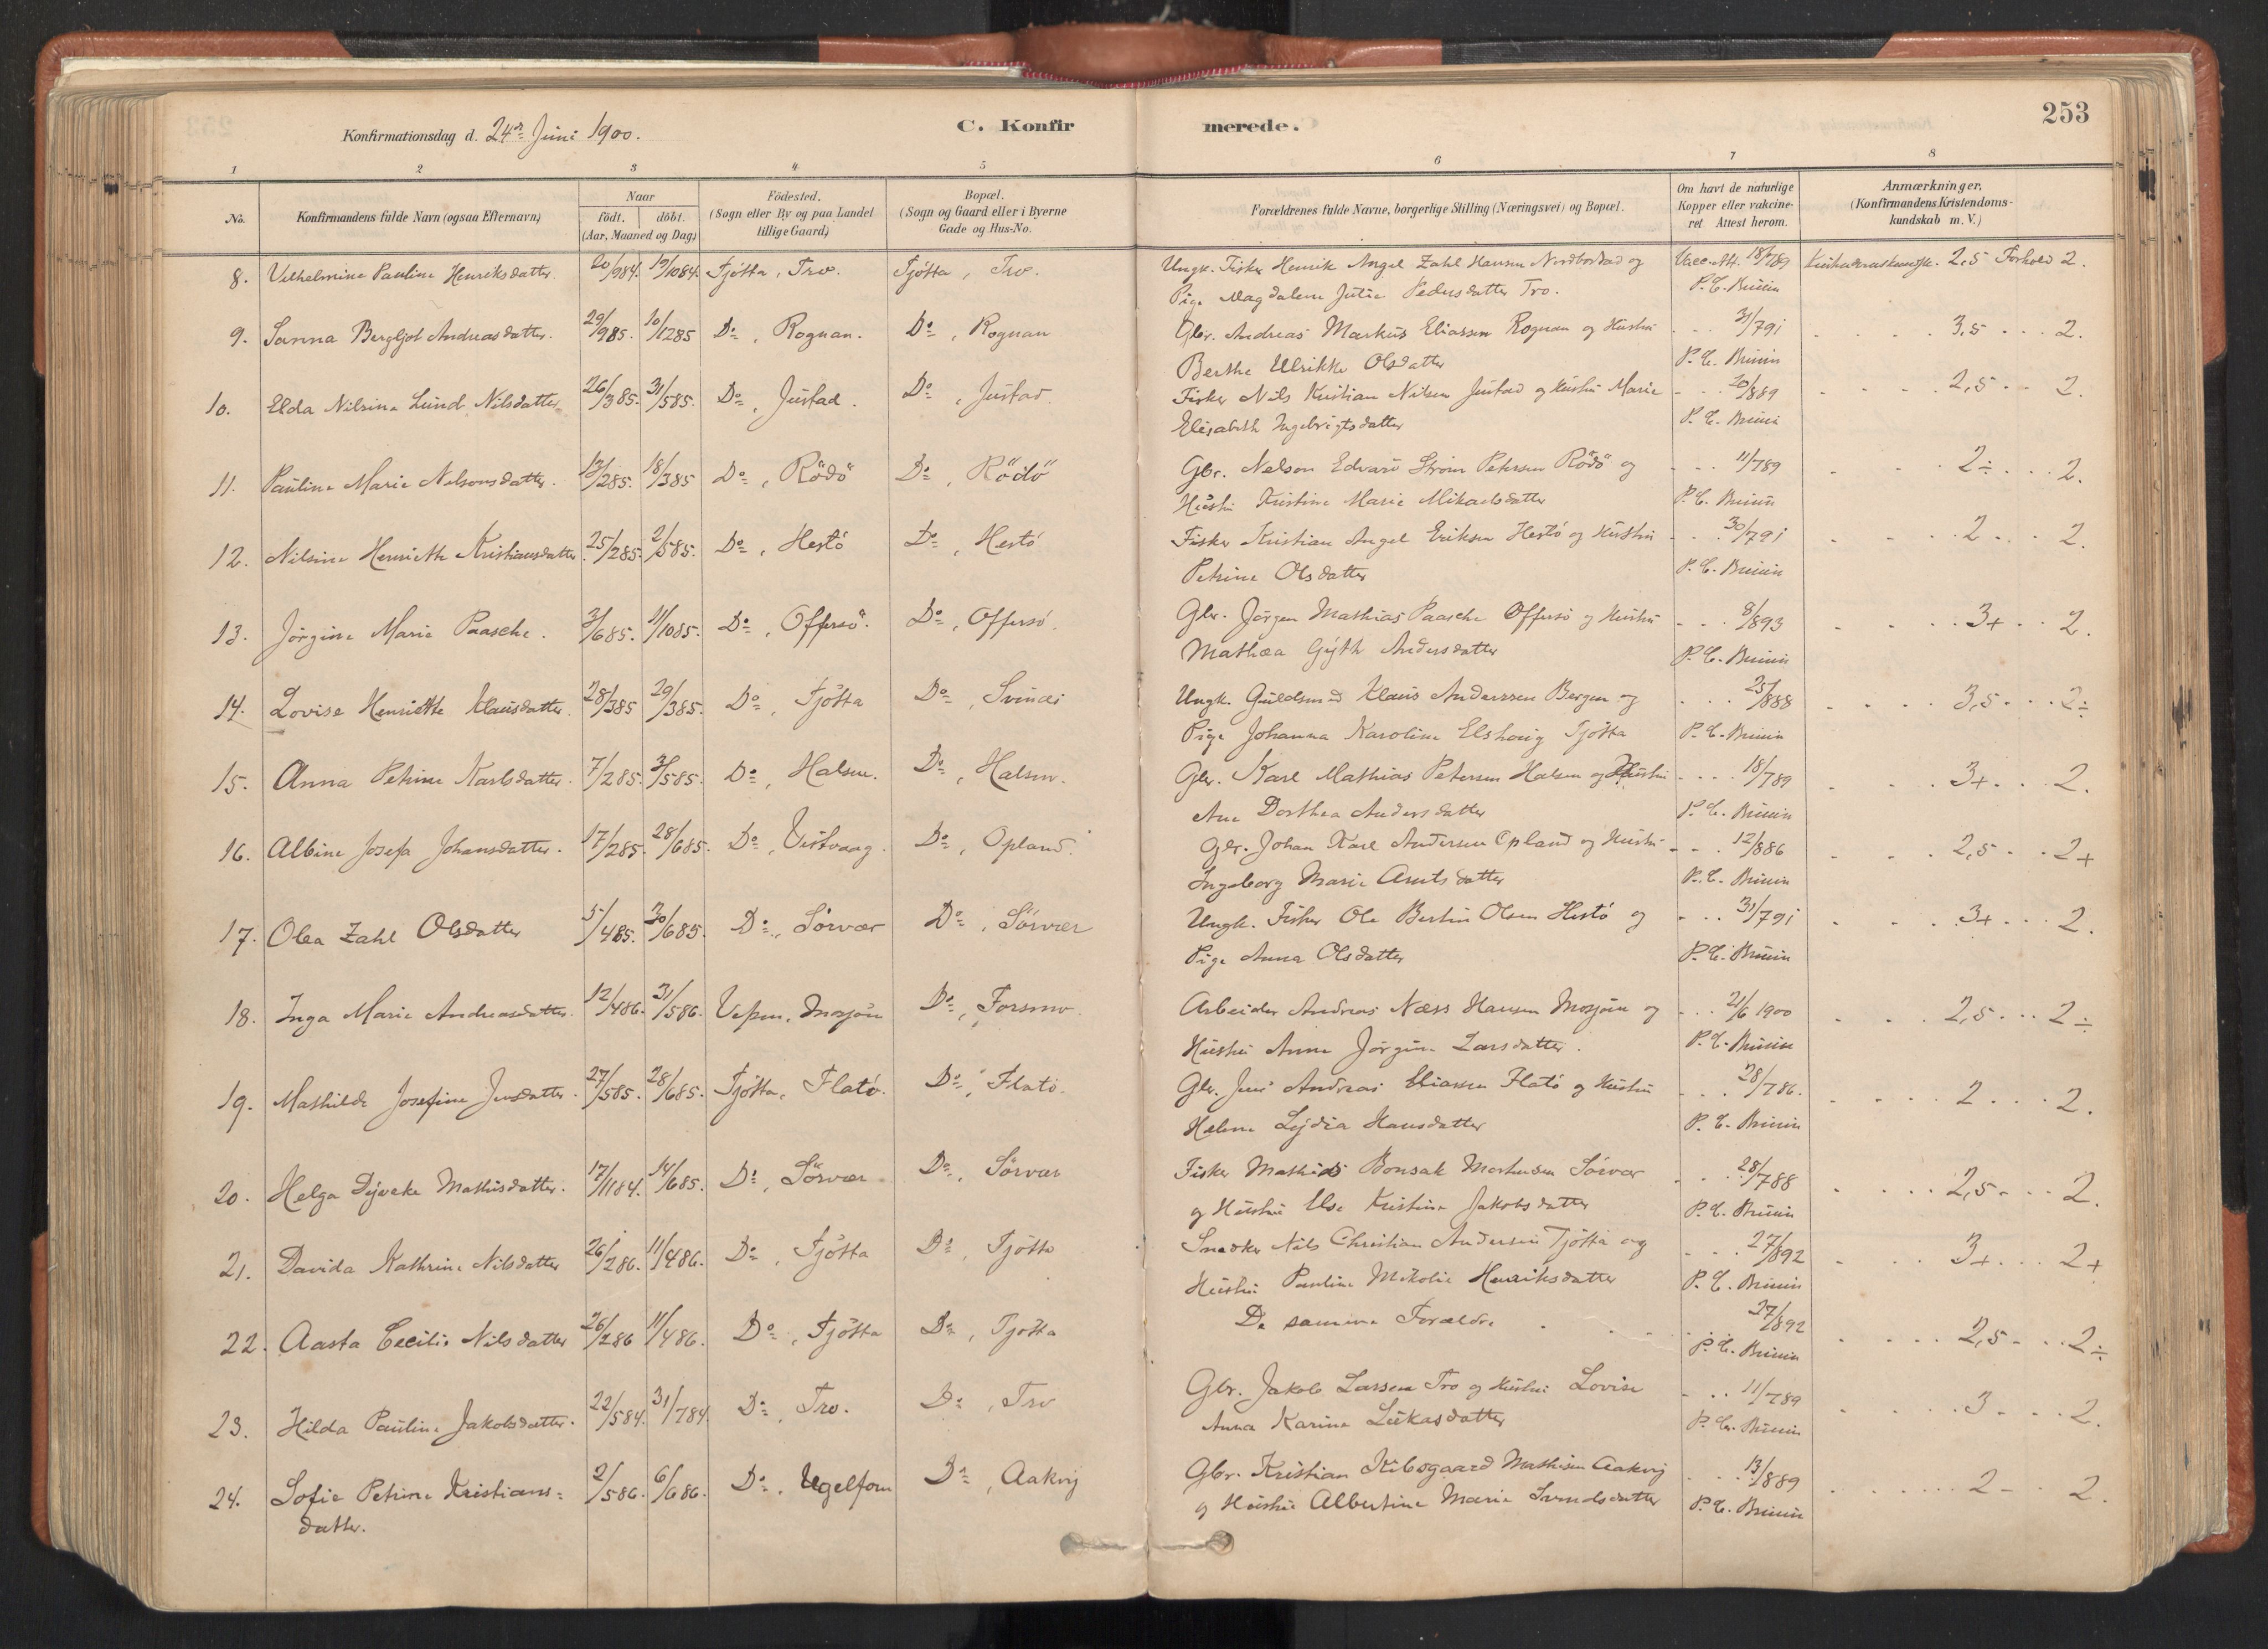 253
Konfirmationsdag d. 24de Juni 1900.
C. Konfirmerede.
1 2 3 4 5 6 7 8
No.
Konfirmandens fulde Navn (ogsaa Efternavn)
Naar
født. døbt.
(Aar, Maaned og Dag)
Födested.
(Sogn eller By og paa Landet
tillige Gaard)
Bopæl.
(Sogn og Gaard eller i Byerne
Gade og Hus-No.
Forældrenes fulde Navne, borgerlige Stilling (Næringsvei) og Bopæl.
Om havt de naturlige
Kopper eller vakcine-
ret Attest herom.
Anmærkninger.
(Konfirmandens Kristendoms-
kundskab m. V.)
8. Vilhelmine Pauline Henriksdatter 20/984. 19/1084. Tjøtta, Tro. Tjøtta, Tro. Ungk. Fisker Henrik Angel Zahl Hansen Nordbostad og Vacc. Att. 18/789 2,5 Forhold 2.
Pige Magdalene Jutie Pedersdatter Tro. P. C. Bruun
9. Sanna Bergljot Andreasdatter. 29/985. 10/1285 Do, Rognan. Do, Rognan Gbr. Andreas Markus Eliassen Rognan og Hustru - . . 31/791 3,5 . . . 2.
Berthe Ulrikke Olsdatter P. C. Bruun
10. Elda Nilsine Lund Nilsdatter 26/385. 31/585. Do, Justad. Do, Justad. Fisker Nils Kristian Nilsen Justad og Hustru Marie - . . 20/889 2,5 . . 2.
Elisabeth Ingebrigtsdatter P. C. Bruun
11. Pauline Marie Nelsonsdatter. 13/285. 18/385 Do, Rödö Do, Rödö Gbr. Nelson Edvard Strøm Petersen Rödö og - . . 11/789 2÷ . . . 2.
Hustru Kristine Marie Mikaelsdatter P. C. Bruun
12. Nilsine Henriette Kristiansdatter. 25/285. 2/585. Do, Hestø Do, Hestø Fisker Kristian Angel Eriksen Hestø og Hustru - . . 30/791 2 . . . 2.
Petrine Olsdatter P. C. Bruun
13. Jørgine Marie Paasche. 3/685. 11/1085. Do, Offersø. Do, Offersø. Gbr. Jørgen Mathias Paasche Offersø og Hustru - . . 8/893 3+ . . 2.
Mathea Gyth Andersdatter P. C. Bruun
14. Lovise Henriette Klausdatter. 28/385 29/385. Do, Tjøtta Do, Svines Ungk. Guldsmed Klaus Anderssen Bergen og . . . 25/888 3,5 . . . 2÷
Pige Johanna Karoline Elshoug Tjøtta P. C. Bruun
15. Anna Petrine Karlsdatter. 7/285. 31/585. Do, Halsen. Do, Halsen. Gbr. Karl Mathias Petersen Halsen og Hustru . . . 18/789 3+ . . . 2.
Ane Dorthea Andersdatter P. C. Bruun
16. Albine Josefa Johansdatter. 17/285. 28/685. Do, Vistvaag. Do, Opland. Gbr. Johan Karl Andersen Opland og Hustru - . . 12/886 2,5 . . 2+
Ingeborg Marie Arntsdatter P. C. Bruun
17. Olea Zahl Olsdatter 5/485. 30/685. Do, Sørvær Do, Sørvær Ungk. Fisker Ole Bertin Olsen Hestø og - . . 31/791 3+ . . . 2.
Pige Anna Olsdatter P. C. Bruun
18. Inga Marie Andreasdatter. 12/486. 31/586. Vefsen, Mosjøen Do, Forsmo. Arbeider Andreas Næss Hansen Mosjøen og . . . 21/6 1900 2,5 . . . 2÷
Hustru Anne Jørgine Larsdatter. P. C. Bruun
19. Mathilde Josefine Jensdatter. 27/585. 28/685. Tjøtta, Flatø. Do, Flatø. Gbr. Jens Andreas Eliassen Flatø og Hustru . . . 28/786. 2 . . . 2.
Helene Lydia Hansdatter P. C. Bruun
20. Helga Dyveke Mathisdatter. 17/1184. 14/685. Do, Sørvær Do, Sørvær Fisker Mathias Bonsak Mortensen Sørvær . . . 28/788 2,5 . . . 2.
og Hustru Else Kristine Jakobsdatter P. C. Bruun
21. Davida Kathrine Nilsdatter 26/286. 11/486. Do, Tjøtta Do, Tjøtta Snedker Nils Christian Andersen Tjøtta og . . . 27/892 3+ . . . 2+
Hustru Pauline Mikolie Henriksdatter P. C. Bruun
22. Aasta Cecilie Nilsdatter 26/286 11/486. Do, Tjøtta Do, Tjøtta De samme Forældre . . . 27/892 2,5 . . . 2÷
P. C. Bruun
23. Hilda Pauline Jakobsdatter. 22/584. 31/784. Do, Tro. Do, Tro Gbr. Jakob Larssen Tro og Hustru Lovise - . . 11/789 3 . . . 2.
Anna Karina Lukasdatter P. C. Bruun
24. Sofie Petrine Kristians= 2/586. 6/686. Do, Ugelfom Do, Aakvig Gbr. Kristian Kibsgaard Mathisen Aakvig . . . 13/889 2 . . 2.
datter. og Hustru Albertine Marie Svendsdatter P. C. Bruun